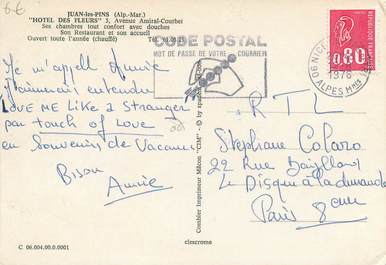 6€
JUAN-les-PINS (Alp.-Mar.)
"HOTEL DES FLEURS" 3, Avenue Amiral-Courbet
Ses chambres tout confort avec douches
Son Restaurant et son accueil
Ouvert toute l'année (chauffé) Tél.
CODE POSTAL
MOT DE PASSE DE VOTRE COURRIER
DE NICE
1976
ALPES Mmes
POSTES
0,80
FRANCE
Je m'appell Annie
J'aimerais entendre
LOVE ME Like a Stranger
par touch of LOVE
en Souvenirs de Vacances
Bisou
Annie
R T L
Stephane Colaro
22 Rue Bayllard
Le Disque à la demande
Paris 8eme
Combier Imprimeur Mâcon "CIM"
C 06.004.00.0.0001
cimcrome